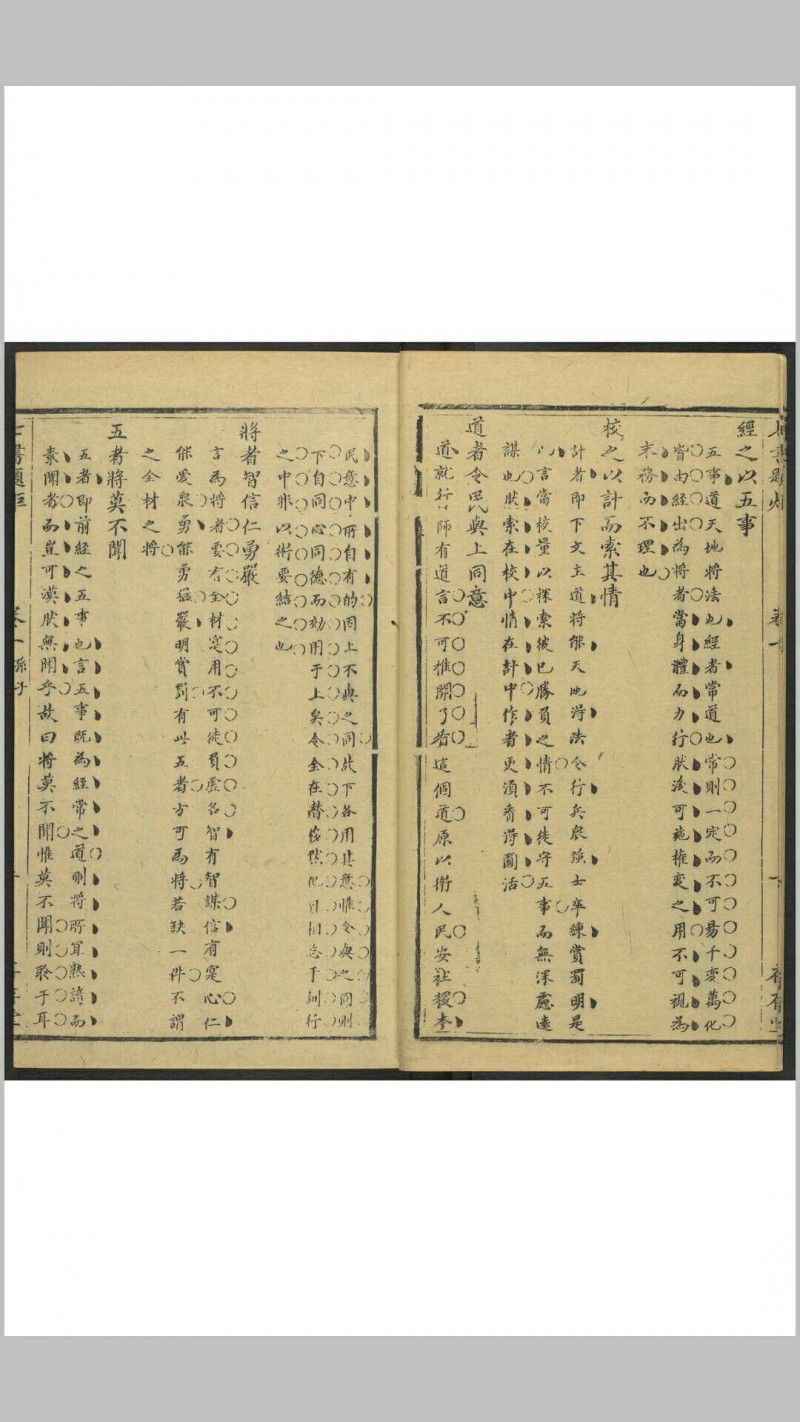 經之以五事
五事道天地將法也經者常道也常則一定而不可易千變萬化
皆由經出為將者當身體而力行肰後可施權変之用不可視為
末務而不理也
校之以計而索其情
計者即下文主道將能天地淂法令行兵衆強士卒練賞罰明是
言當校量以探索彼己勝負之情不可徒守五事而無深慮遠
謀也肰索在校中情在計中作者更須看淂圓活
道者令民與上同意
道就行師有道言不可推開了看這個道原以衛人民安社稷本
民意中所自有的同上不與之同此下各用其意惟令與之同則
下自同心同德而効用于上矣令全在潛移默化日相忘于訓行
之中非以術要結之也
將者智信仁勇嚴
言為將者要有全材寔用不可徒負虛名智有智謀信有寔心仁
能愛衆勇能勇猛嚴明賞罰有此五者方可為將若缺一件不謂
之全材之將
五者將莫不聞
五者即前經之五事也言五事既為經常之道則將所耳熟諳而
素聞者而豈可漠肰無聞乎故曰將莫不聞惟莫不聞則聆于耳
卷一 孫子